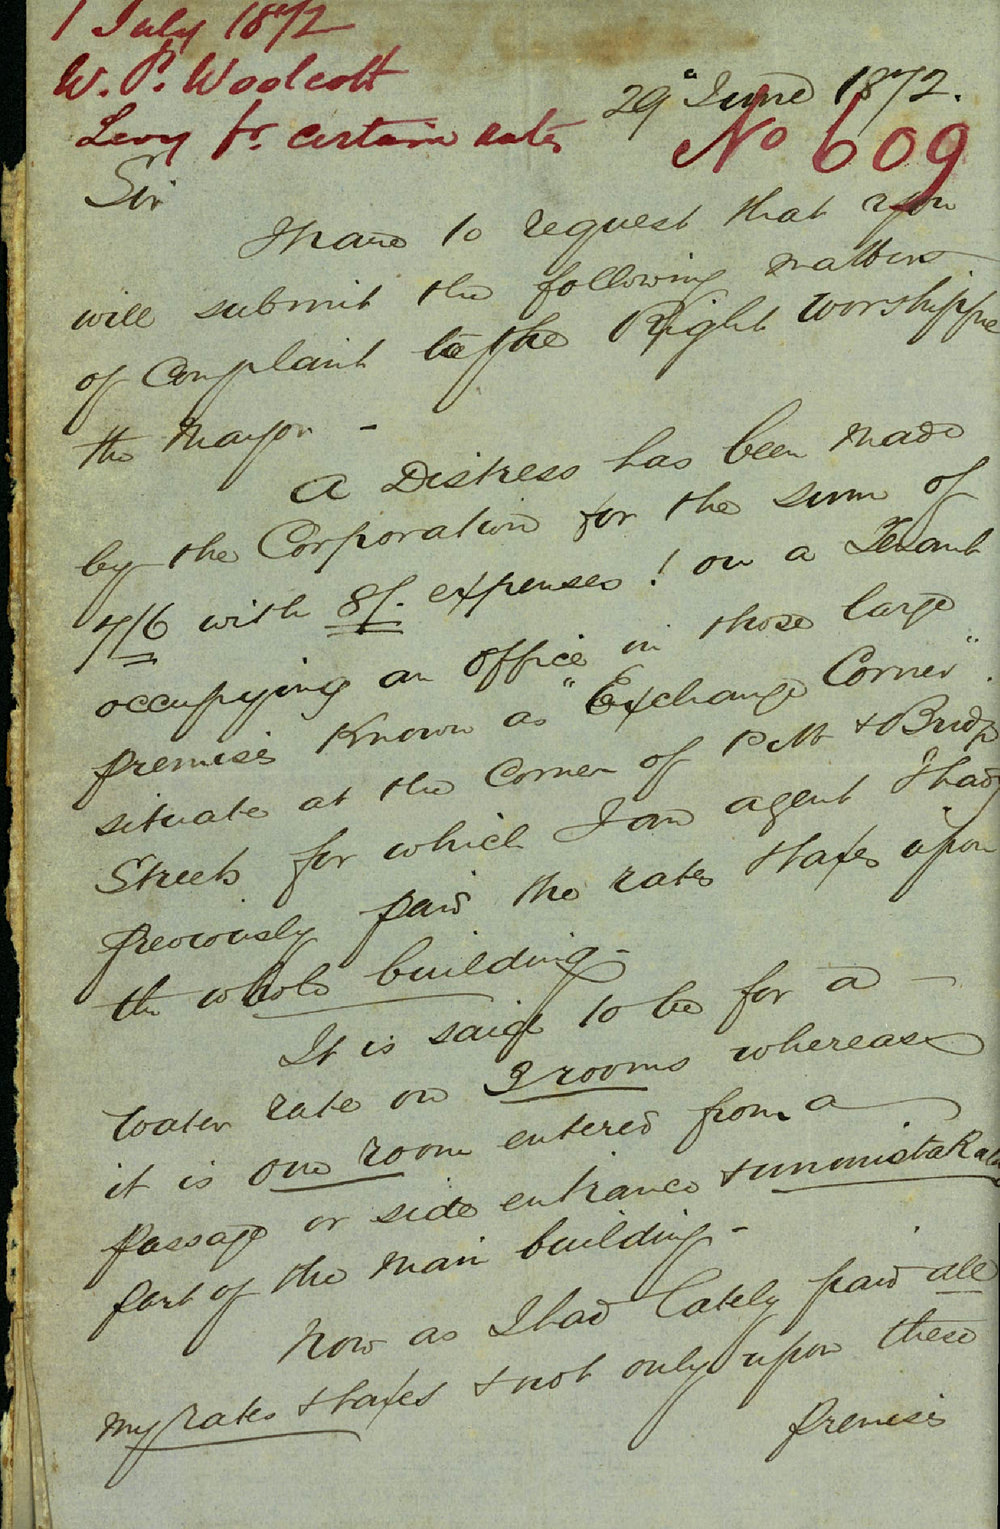 1 July 1872
W. P. Woolcott
Levy fr. certain rates
29" June 1872.
No 609
Sir
I have to request that you
will submit the following matters
of Complaint to the Right Worshipful
the Mayor -
A Distress has been made
by the Corporation for the sum of
7/6 with 8/. expenses! on a Tenant
occupying an Office in those large
premises Known as "Exchange Corner".
situate at the Corner of Pitt & Bridge
Streets for which I am agent I had
previously paid the rates & taxes upon
the whole building -
It is said to be for a -
water rate on 2 rooms whereas
it is one room entered from a
passage or side entrance & unmistakable
part of the main building -
Now as I had lately paid all
my rates & taxes & not only upon these
premises